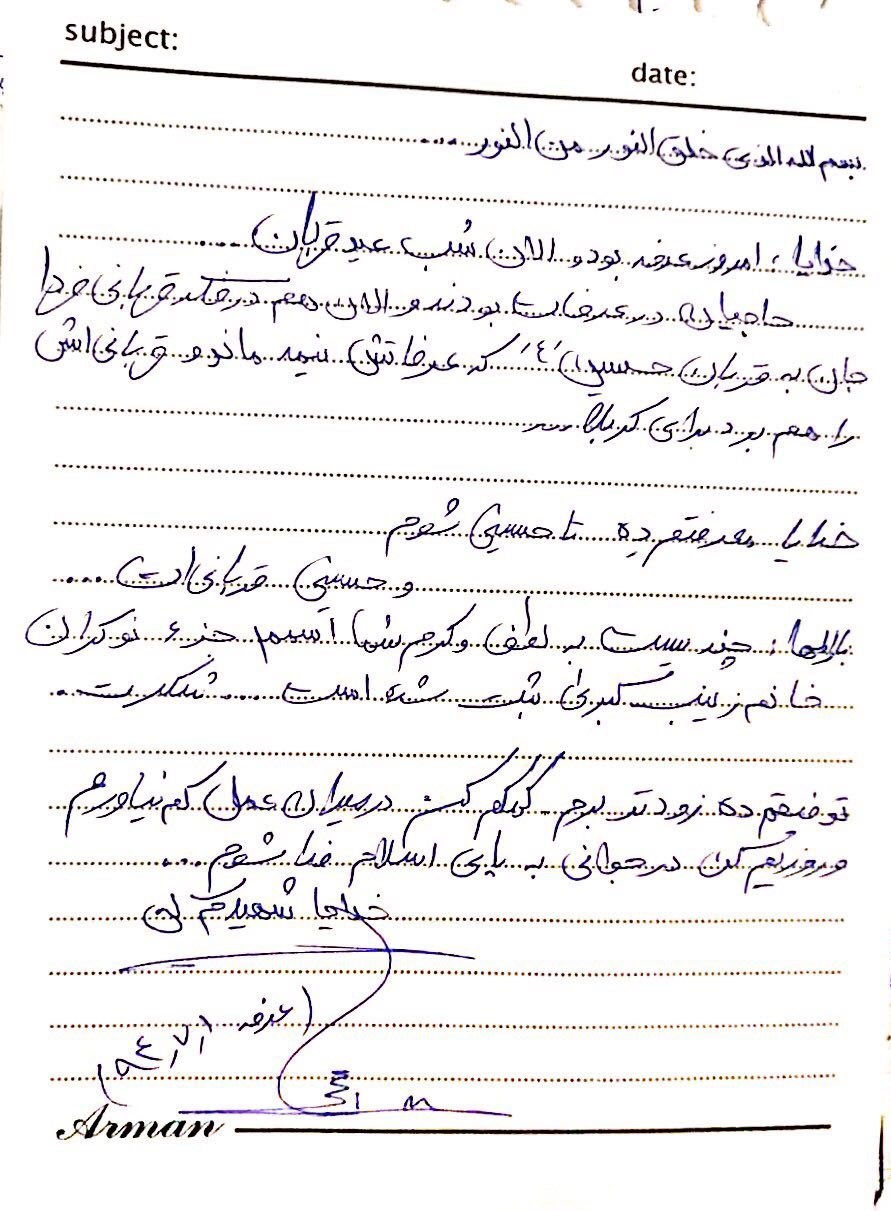 subject:
date:
بسم الله الذی خلق النور من النور....
خدایا؛ امروز عرفه بود و الان شب عید قربان....
حاجیان در عرفات بودند و الان هم در فکر قربانی فردا
جان به قربان حسین 'ع' که عرفاتش نیمه ماند و قربانی‌اش
را هم برد برای کربلا...
خدایا معرفتم ده تا حسینی شوم
و حسینی قربانی‌ات....
بارالها؛ چندیست به لطف و کرم شما اسمم جزء نوکران
خانم زینب کبریٰ ثبت شده است.... شکرت..
توفیقم ده زودتر برم. کمکم کن در میزان عمل کم نیاورم
و روزیم کن در جوانی به پای اسلام فدا شوم....
خدایا شهیدم کن
(عرفه ۹۴,۷,۱)
Arman